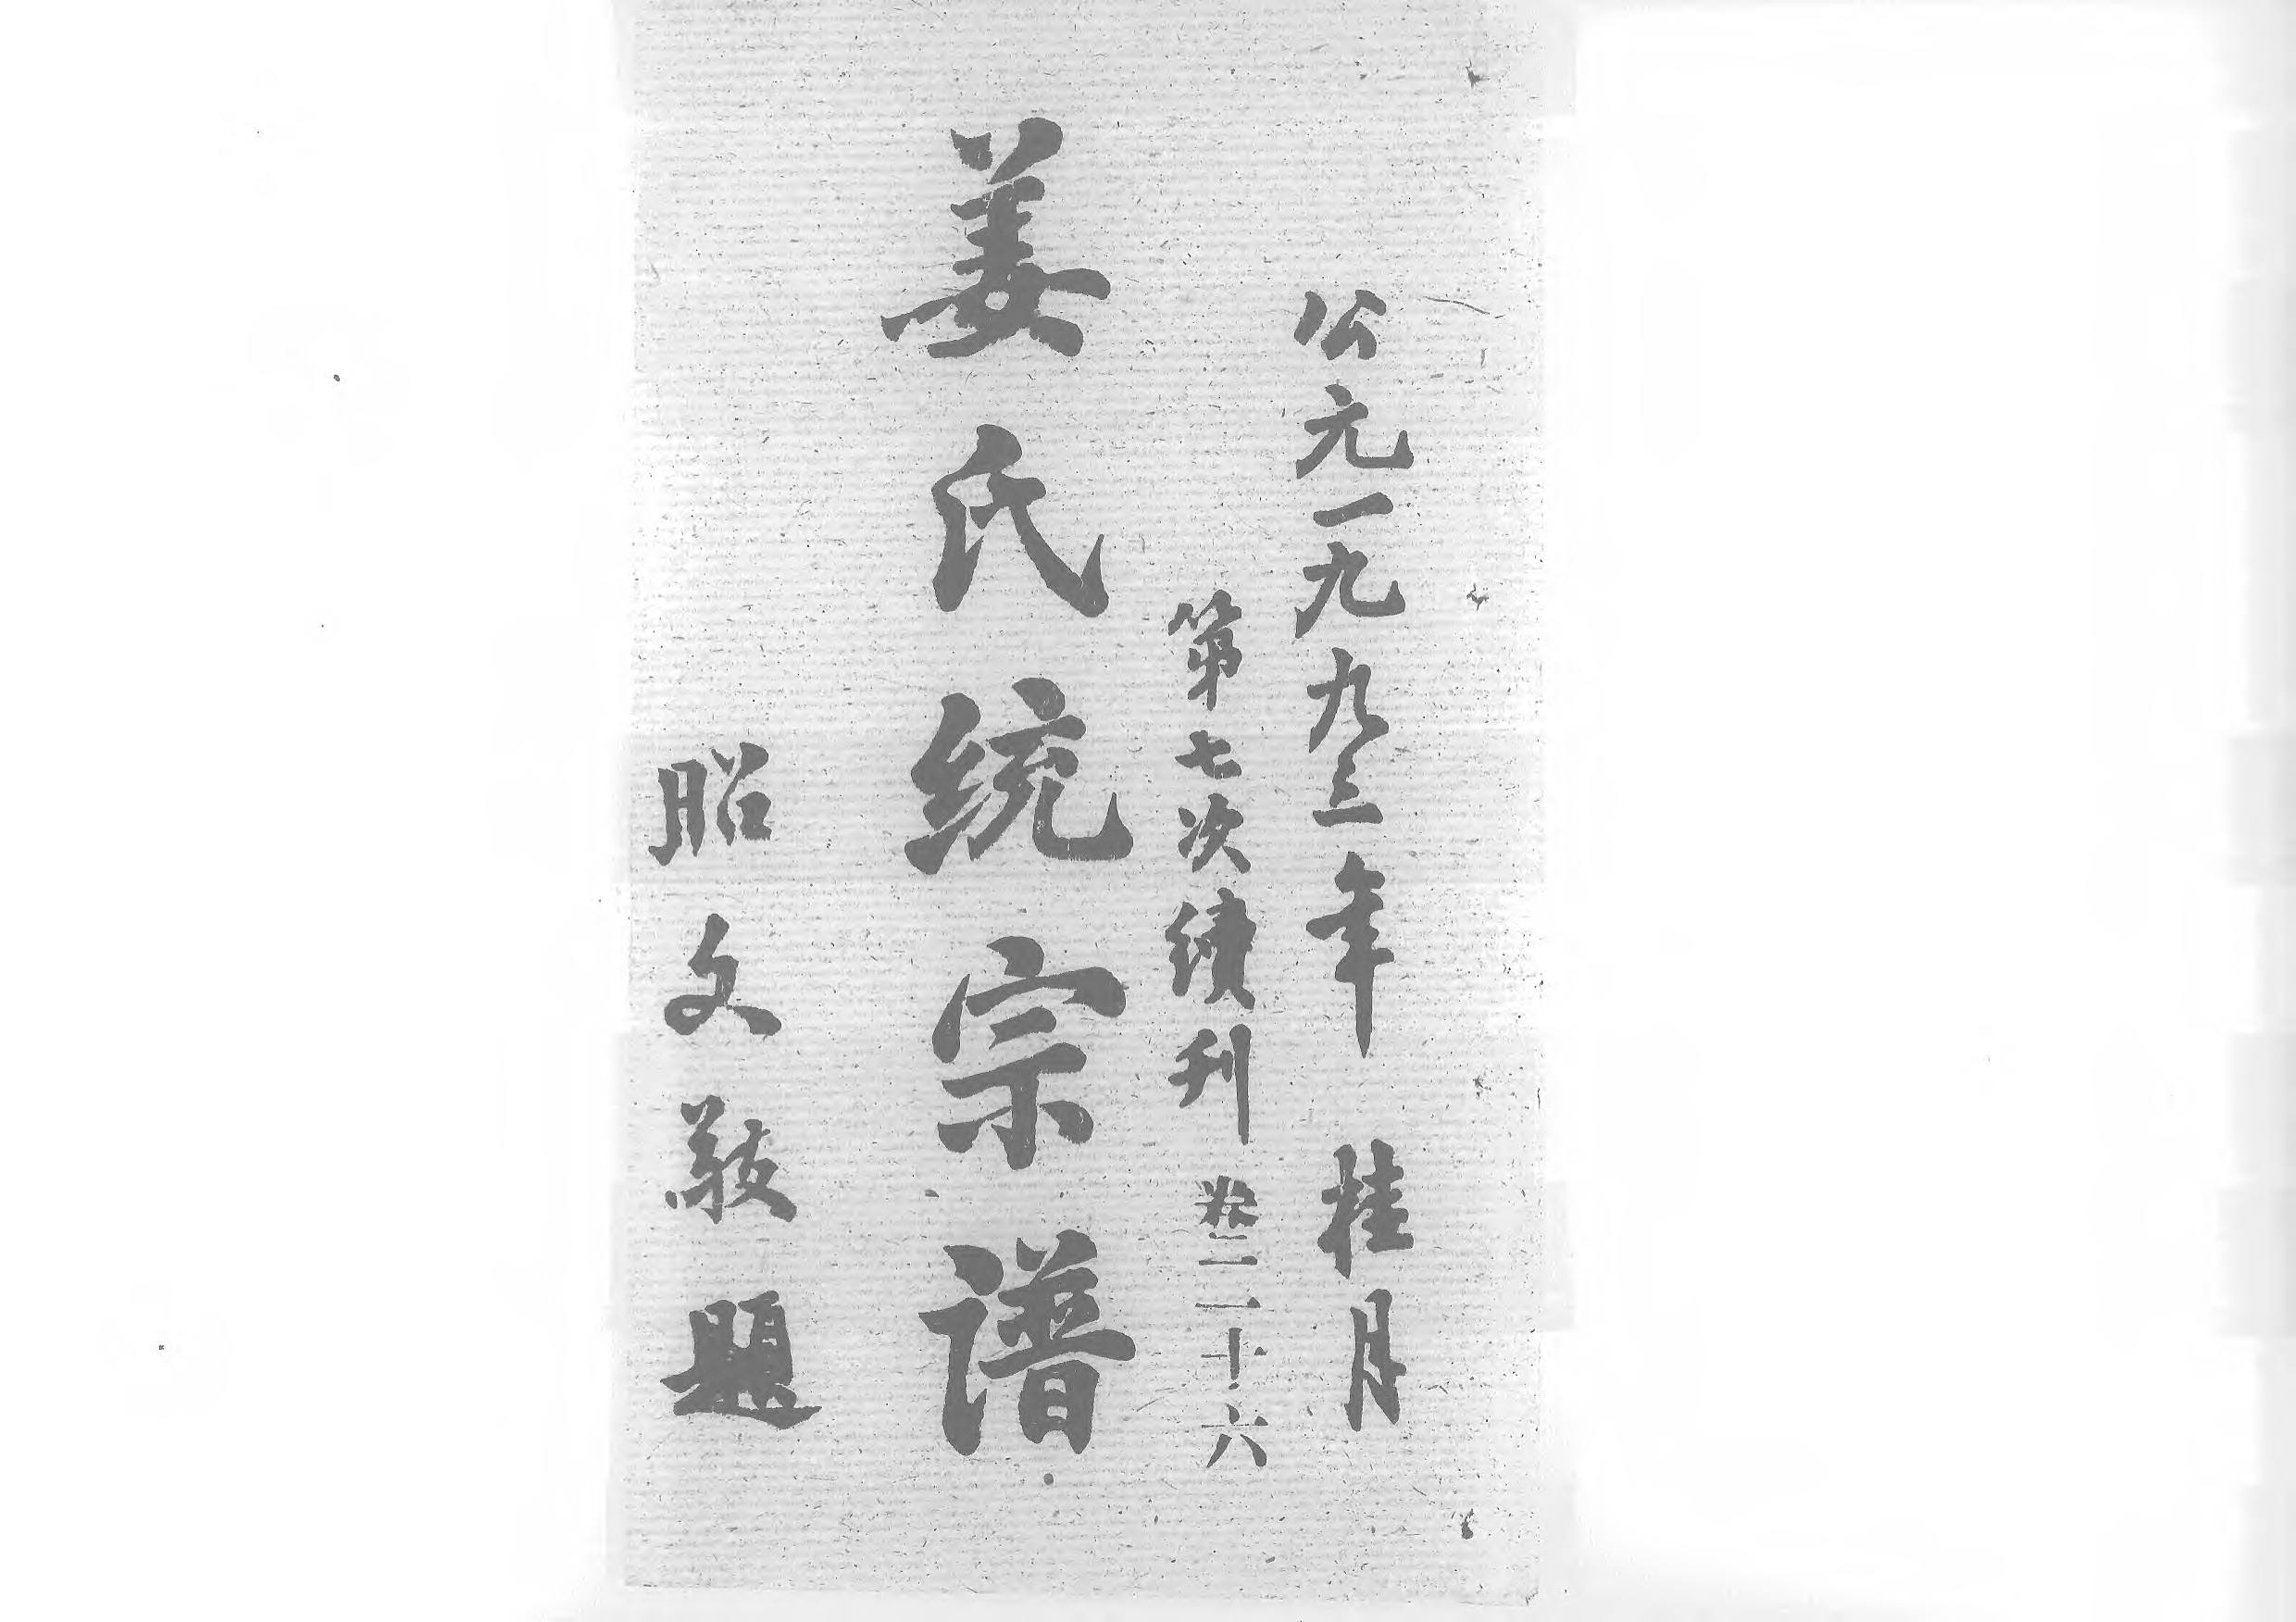 公元一九九三年 桂月
第七次續刊 卷二十六
姜氏统宗谱
昭文敬題